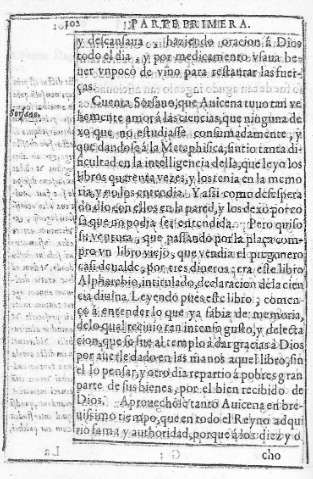 102 PARTE PRIMERA.
y descansaua, haziendo oracion á Dios
todo el dia, y por medicamento vsaua be
uer vn poco de vino para restaurar las fuer-
ças.
Sorsano.
Cuenta Sorsano, que Auicena tuuo tan ve
hemente amor á las ciencias, que ninguna de
xo que no estudiasse consumadamente, y
que dandose á la Metaphisica, sintio tanta di-
ficultad en la intelligencia della, que leyo los
libros quarenta vezes, y los tenia en la memo
ria, y no los entendia. Y assi como desespera
do dio con ellos en la pared, y los dexó por co
sa que no podia ser entendida. Pero quiso
su ventura, que passando por la plaça com-
pro vn libro viejo, que vendia el pregonero
casi de valde, por tres dineros; era este libro
Alpharabio, intitulado, declaracion de la cien
cia diuina. Leyendo pues este libro, comen-
çó á entender lo que ya sabia de memoria,
de lo qual recibio tan intenso gusto, y delecta
cion, que se fue al templo á dar gracias á Dios
por auerle dado en las manos aquel libro, sin
el lo pensar, y otro dia repartio á pobres gran
parte de sus bienes, por el bien recibido de
Dios. Aprouechóse tanto Auicena en bre-
uissimo tiempo, que en todo el Reyno adqui
rio fama y authoridad, porque á los diez y o
cho